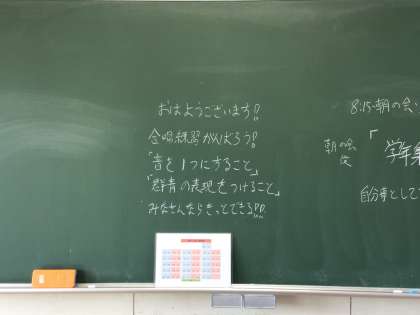 おはようございます!!
合唱練習がんばろう!!
「音を1つにすること」
「群青の表現をつけること」
みなさんならきっとできる!!
8:15 朝の会
朝の会
後
「学年
自分事として